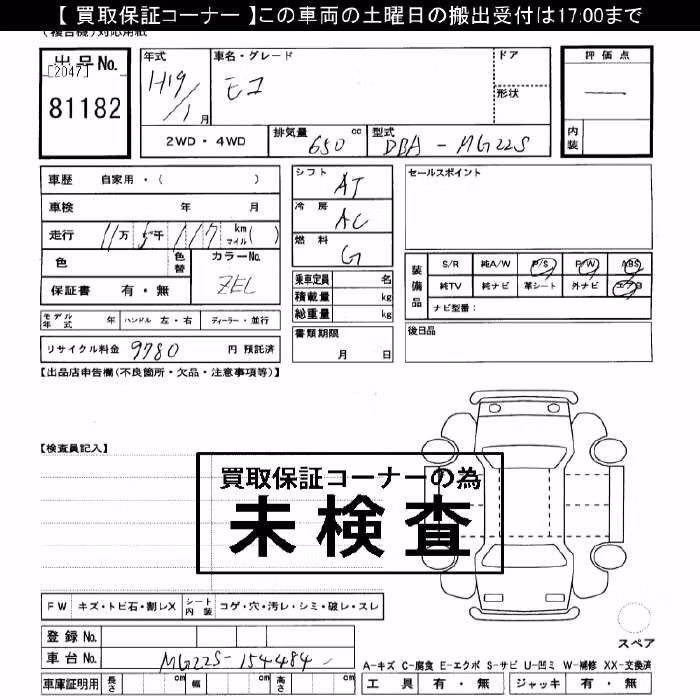 【 買取保証コーナー 】この車両の土曜日の搬出受付は17:00まで
(複合機)対応用紙
出品No.
[2047]
81182
年式
H19/1月
車名・グレード
モコ
ドア
形状
評価点
―
内装
2WD・4WD
排気量
650 cc
型式
DBA - MG22S
車歴 自家用・( )
車検 年 月
走行 11万5千117 km マイル( )
色
色替
カラーNo.
ZEL
保証書 有・無
シフト
AT
冷房
AC
燃料
G
乗車定員 名
積載量 kg
総重量 kg
書類期限
月 日
セールスポイント
装備品
S/R 純A/W P/S P/W ABS
純TV 純ナビ 革シート 外ナビ エアB
ナビ型番:
後日品
モデル年式 年 ハンドル 左・右 ディーラー・並行
リサイクル料金 9780 円 預託済
【出品店申告欄(不良箇所・欠品・注意事項等)】
【検査員記入】
買取保証コーナーの為
未検査
FW キズ・トビ石・割レX シート内装 コゲ・穴・汚レ・シミ・破レ・スレ
登録No.
車台No. MG22S-154484
車庫証明用 長さ cm 幅 cm 高さ cm
スペア
A-キズ C-腐食 E-エクボ S-サビ U-凹ミ W-補修 XX-交換済
工具 有・無 ジャッキ 有・無